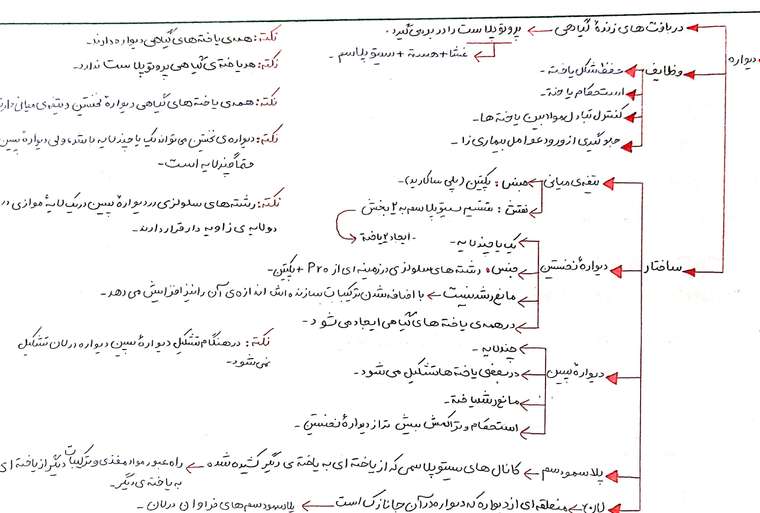 دیواره
در بافت های زنده گیاهی ← پروتوپلاست را در بر می گیرد.
غشا + هسته + سیتوپلاسم.
وظایف
حفظ شکل یاخته.
استحکام یاخته.
کنترل تبادل مواد بین یاخته ها.
جلوگیری از ورود عوامل بیماری زا.
ساختار
تیغه ی میانی
جنس: پکتین (پلی ساکارید).
نقش: تقسیم سیتوپلاسم به ۲ بخش
ایجاد ۲ یاخته.
دیواره نخستین
یک یا چند لایه.
جنس: رشته های سلولزی در زمینه ای از Pro + پکتین.
مانع رشد نیست ← با اضافه شدن ترکیبات سازنده اش اندازه ی آن را نیز افزایش می دهد.
در همه ی یاخته های گیاهی ایجاد می شود.
دیواره پسین
چند لایه.
در بعضی یاخته ها تشکیل می شود.
مانع رشد یاخته.
استحکام و تراکمش بیش تر از دیواره نخستین.
پلاسمودسم ← کانال های سیتوپلاسمی که از یاخته ای به یاخته ی دیگر کشیده شده ← راه عبور مواد مغذی و ترکیبات دیگر از یاخته ای
به یاخته ی دیگر.
لان ← منطقه ای از دیواره که دیواره در آن جا نازک است ← پلاسمودسم های فراوان در لان.
نکته: همه ی یاخته های گیاهی دیواره دارند.
نکته: هر یاخته ی گیاهی پروتوپلاست ندارد.
نکته: همه ی یاخته های گیاهی دیواره نخستین و تیغه ی میانی دارند
نکته: دیواره ی نخستین می تواند یک یا چند لایه باشد، ولی دیواره پسین
حتماً چند لایه است.
نکته: رشته های سلولزی در دیواره پسین در یک لایه موازی و در
دو لایه ی زاویه دار قرار دارند.
نکته: در هنگام تشکیل دیواره پسین دیواره در لان تشکیل
نمی شود.